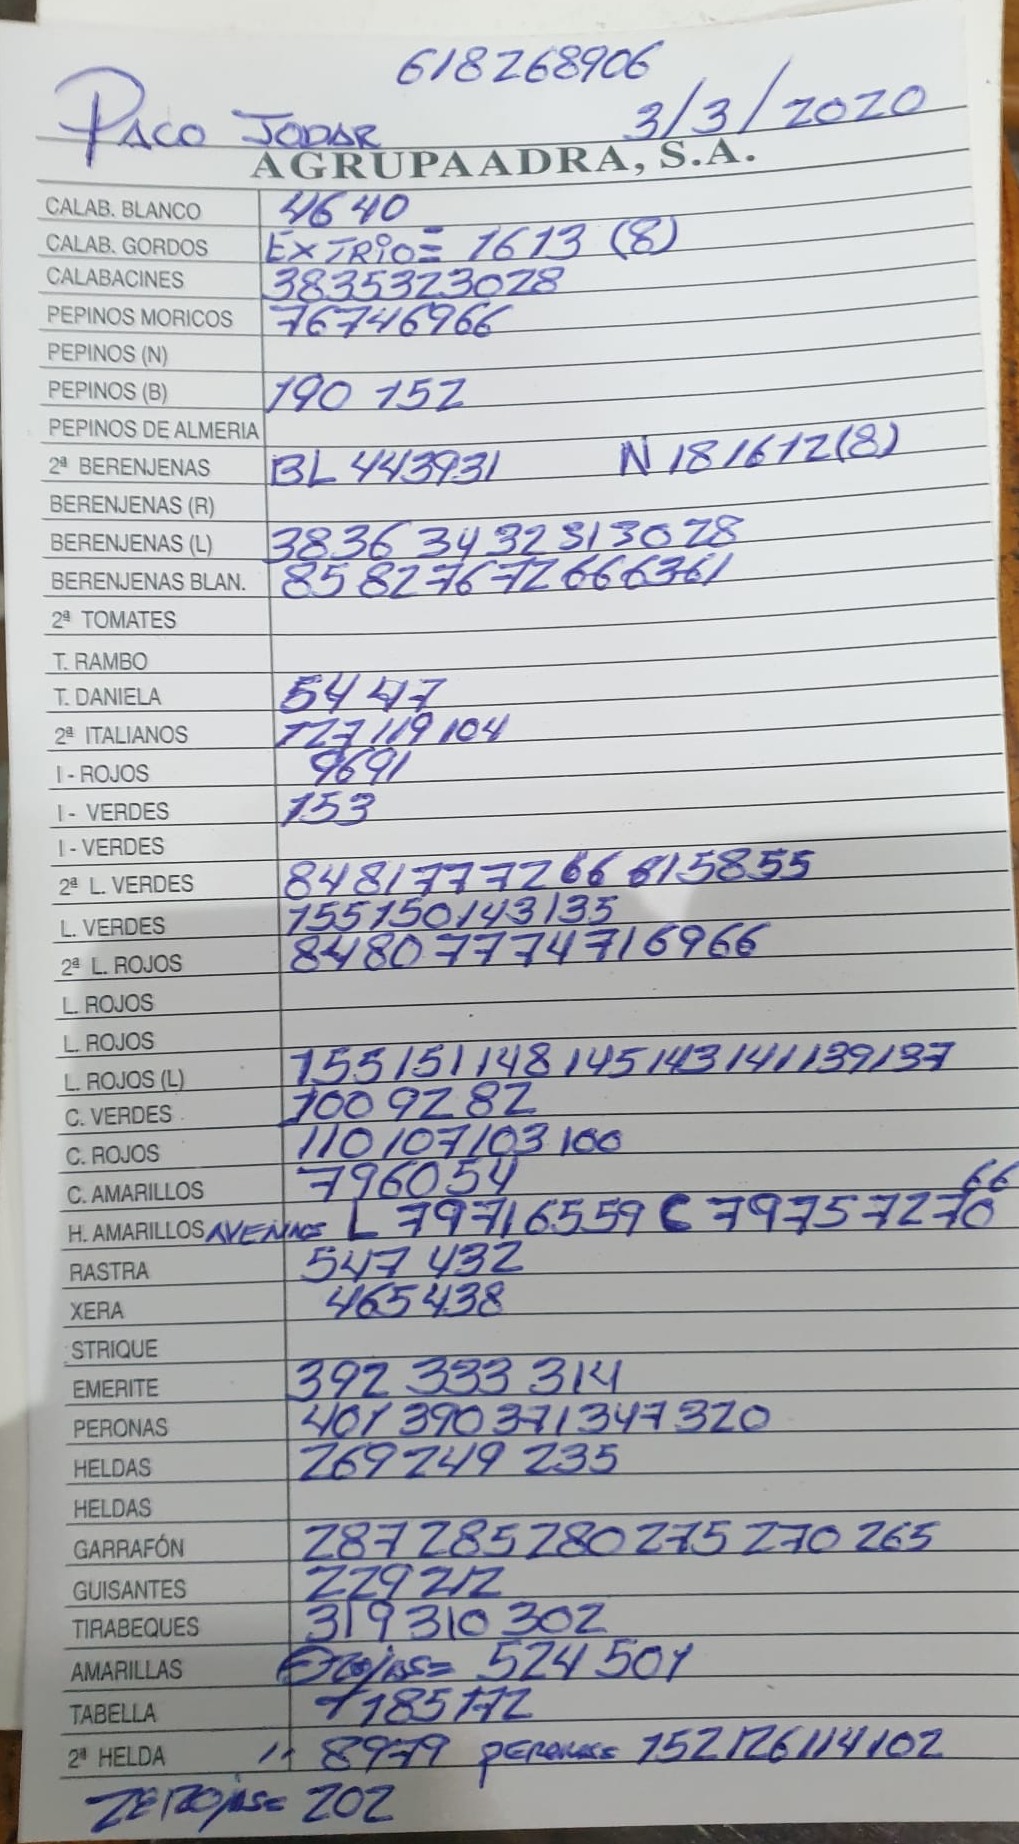 618268906
PACO JODAR 3/3/2020
AGRUPAADRA, S.A.
CALAB. BLANCO 4640
CALAB. GORDOS EXTRIO= 1613 (8)
CALABACINES 3835323028
PEPINOS MORICOS 76746966
PEPINOS (N)
PEPINOS (B) 190 152
PEPINOS DE ALMERIA
2ª BERENJENAS BL 443931 N 181612(8)
BERENJENAS (R)
BERENJENAS (L) 3836 3432313028
BERENJENAS BLAN. 858276726663 61
2ª TOMATES
T. RAMBO
T. DANIELA 5447
2ª ITALIANOS 127119104
I - ROJOS 9691
I - VERDES 153
I - VERDES
2ª L. VERDES 8481777266615855
L. VERDES 155150143135
2ª L. ROJOS 84807774716966
L. ROJOS
L. ROJOS
L. ROJOS (L) 155151148145143141139137
C. VERDES 1009282
C. ROJOS 110107103100
C. AMARILLOS 796054
66
H. AMARILLOS AVENAOS L 79716559 C 7975727 70
RASTRA 547 432
XERA 465438
STRIQUE
EMERITE 392 333 314
PERONAS 401390371347320
HELDAS 269249 235
HELDAS
GARRAFÓN 287285280275270265
GUISANTES 229212
TIRABEQUES 319310302
AMARILLAS 524 501
TABELLA 185172
2ª HELDA 11 8979 PERONAS= 152126114102
202